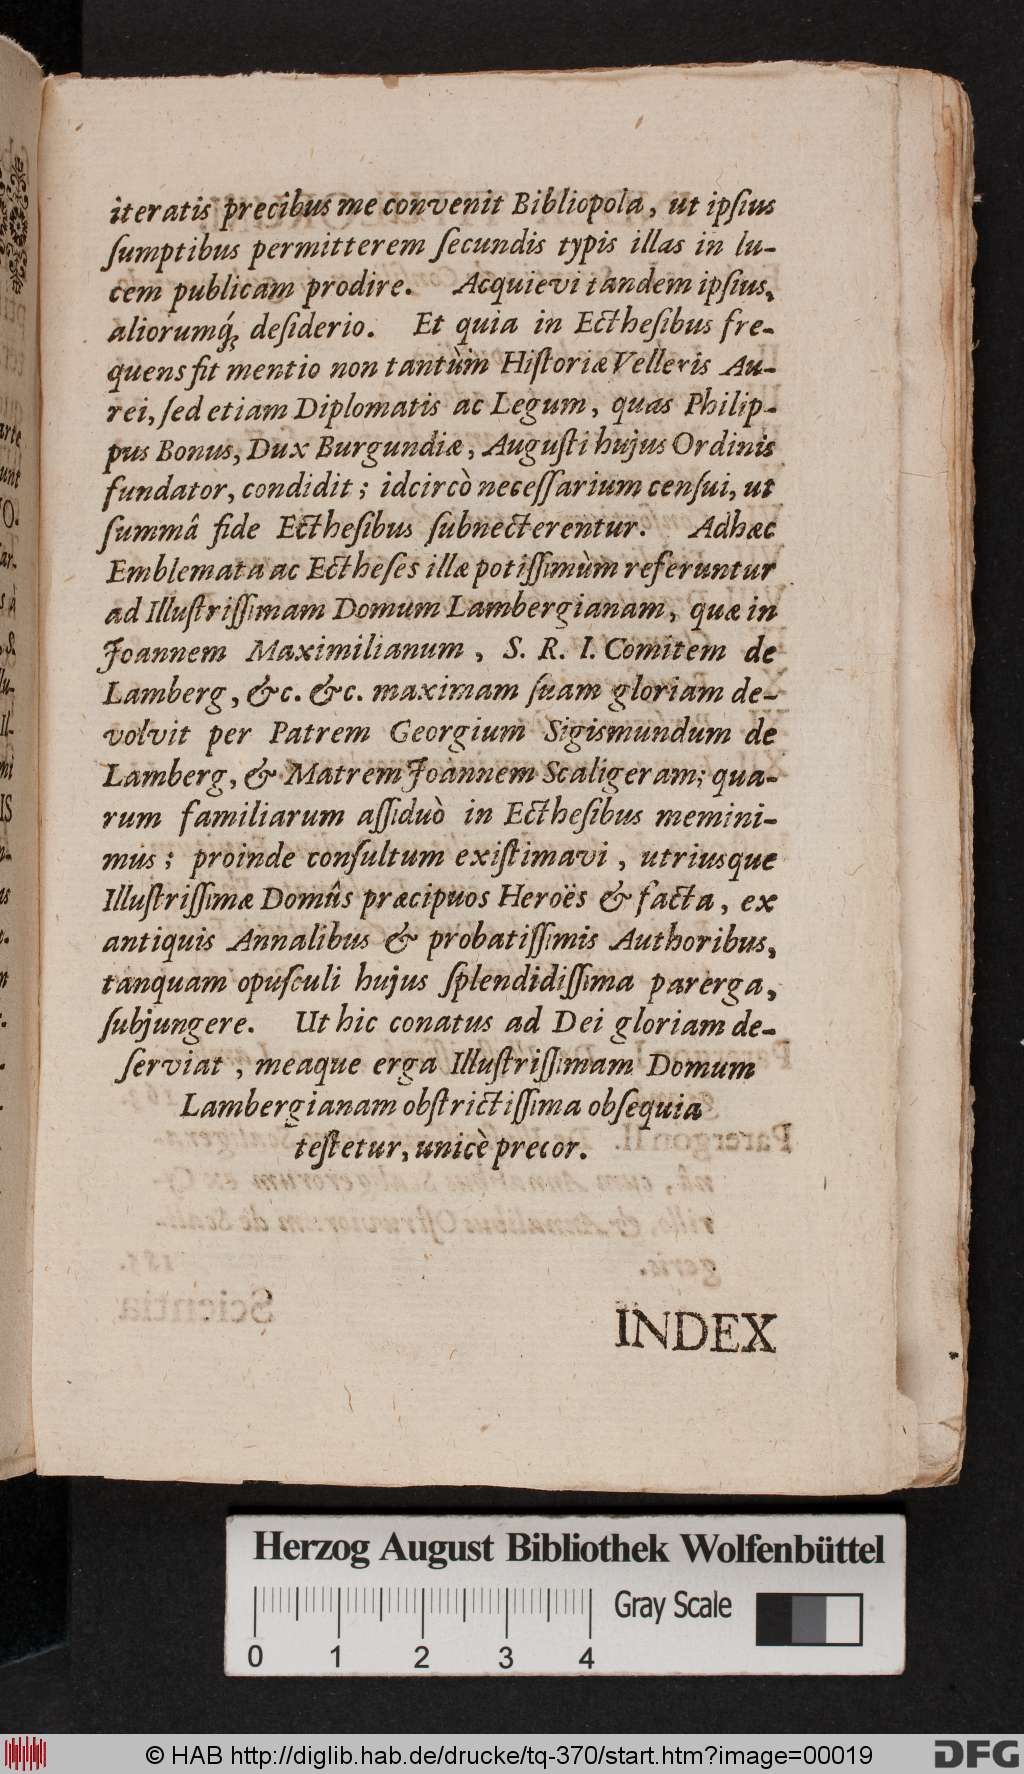 iteratis precibus me convenit Bibliopola, ut ipſius
ſumptibus permitterem ſecundis typis illas in lu-
cem publicam prodire. Acquievi tandem ipſius,
aliorumq́; deſiderio. Et quia in Ectheſibus fre-
quens fit mentio non tantùm Hiſtoriæ Velleris Au-
rei, ſed etiam Diplomatis ac Legum, quas Philip-
pus Bonus, Dux Burgundiæ, Auguſti hujus Ordinis
fundator, condidit; idcircò neceſſarium cenſui, ut
ſummâ fide Ectheſibus ſubnecterentur. Adhæc
Emblemata ac Ectheſes illæ potiſſimùm referuntur
ad Illuſtriſſimam Domum Lambergianam, quæ in
Joannem Maximilianum, S. R. I. Comitem de
Lamberg, &c. &c. maximam ſuam gloriam de-
volvit per Patrem Georgium Sigismundum de
Lamberg, & Matrem Joannem Scaligeram; qua-
rum familiarum aſſiduò in Ectheſibus memini-
mus; proinde conſultum exiſtimavi, utriusque
Illuſtriſſimæ Domûs præcipuos Heroës & facta, ex
antiquis Annalibus & probatiſſimis Authoribus,
tanquam opuſculi hujus ſplendidiſſima parerga,
ſubjungere. Ut hic conatus ad Dei gloriam de-
ſerviat, meaque erga Illuſtriſſimam Domum
Lambergianam obſtrictiſſima obſequia
teſtetur, unicè precor.
INDEX
Herzog August Bibliothek Wolfenbüttel
Gray Scale
0 1 2 3 4
© HAB http://diglib.hab.de/drucke/tq-370/start.htm?image=00019
DFG